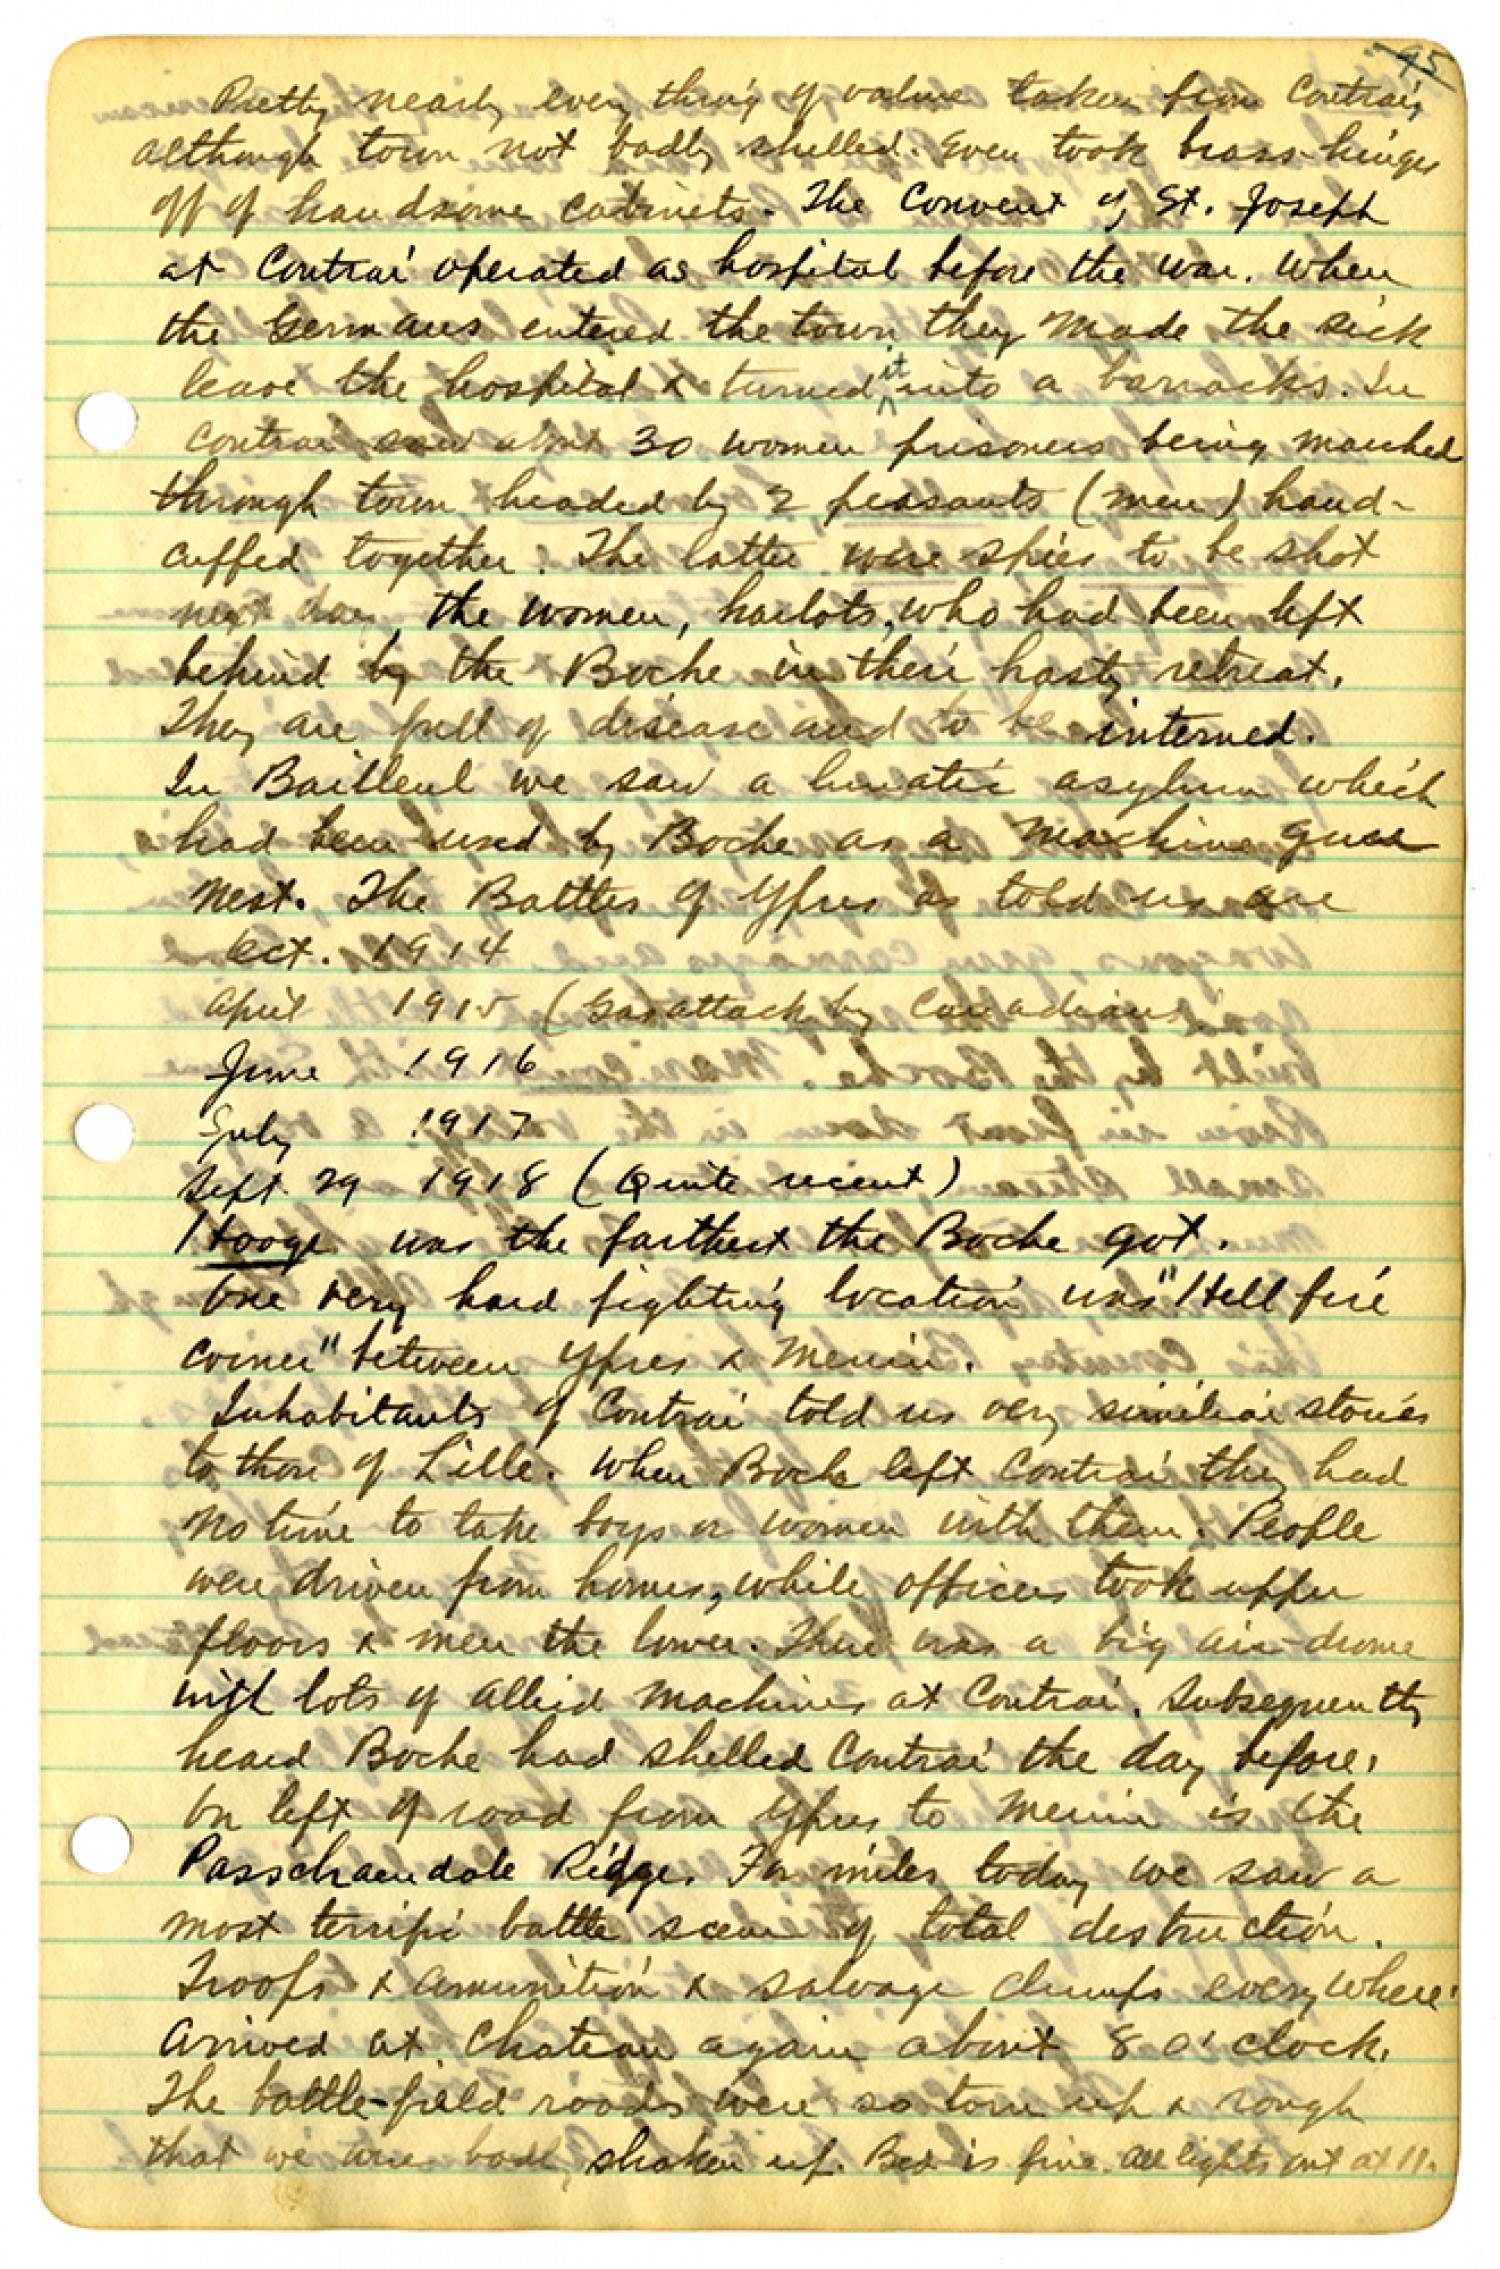 95
Pretty nearly every thing of value taken from Contrai,
although town not badly shelled. Even took brass-hinges
off of handsome cabinets. The Convent of St. Joseph
at Contrai operated as hospital before the war. When
the Germans entered the town they made the sick
leave the hospital & turned it into a barracks. In
Contrai saw about 30 women prisoners being marched
through town headed by 2 peasants (men) hand-
cuffed together. The latter were spies to be shot
next day, the women, harlots, who had been left
behind by the Boche in their hasty retreat.
They are full of disease and to be interned.
In Bailleul we saw a lunatic asylum which
had been used by Boche as a machine gun
nest. The Battles of Ypres as told us are
Oct. 1914
April 1915 (Gas attack by Canadians)
June 1916
July 1917
Sept 29 1918 (Quite recent)
Hooge was the farthest the Boche got.
One very hard fighting location was "Hell fire
corner" between Ypres & Menin.
Inhabitants of Contrai told us very similiar stories
to those of Lille. When Boche left Contrai they had
no time to take boys or women with them. People
were driven from homes, while officers took upper
floors & men the lower. There was a big air-drome
with lots of Allied machines at Contrai. Subsequently
heard Boche had shelled Contrai the day before.
On left of road from Ypres to Menin is the
Passchaendale Ridge. For miles today we saw a
most terrific battle scene of total destruction.
Troops & amunition & salvage dumps everywhere.
Arrived at Chateau again about 8 o'clock.
The battle-field roads were so torn up & rough
that we are badly shaken up. Bed is fine. All lights out at 11.